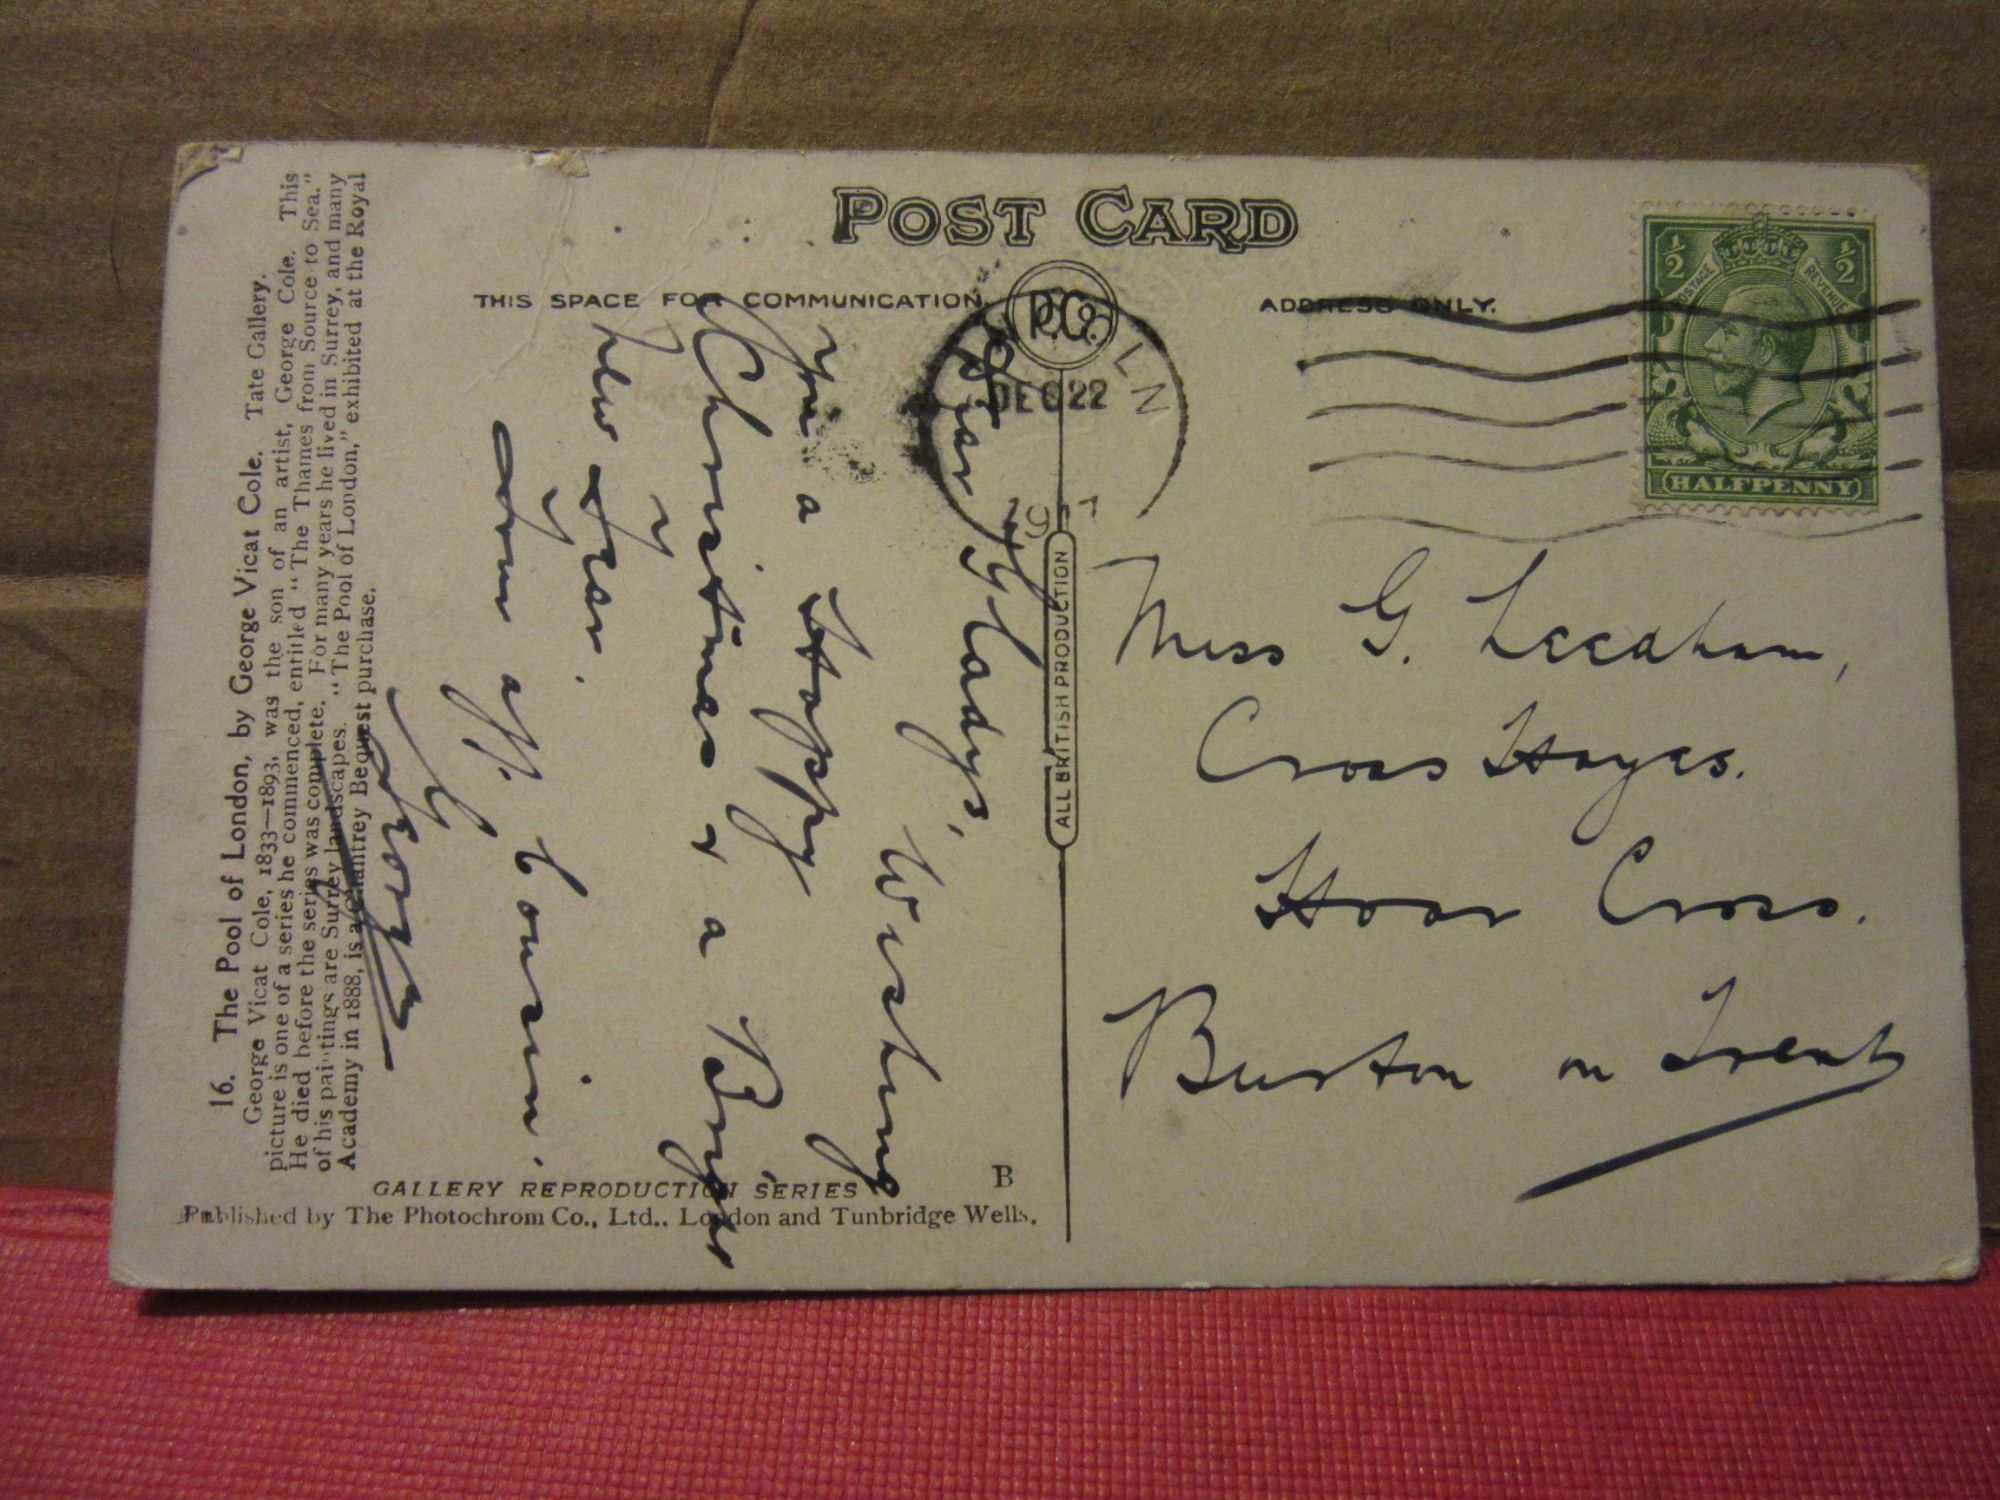 POST CARD
THIS SPACE FOR COMMUNICATION.
ADDRESS ONLY.
P.Co.
LN
DEC 22
½ ½
POSTAGE REVENUE
HALFPENNY
ALL BRITISH PRODUCTION
Miss G. Leedham,
Cross Hayes.
Hoar Cross.
Burton on Trent
Dear Gladys,
Wishing
you a Happy
Christmas & a Bright
New Year.
from aff. Cousin.
George
16. The Pool of London, by George Vicat Cole. Tate Gallery.
George Vicat Cole, 1833—1893, was the son of an artist, George Cole. This
picture is one of a series he commenced, entitled "The Thames from Source to Sea."
He died before the series was complete. For many years he lived in Surrey, and many
of his paintings are Surrey landscapes. "The Pool of London," exhibited at the Royal
Academy in 1888, is a Chantrey Bequest purchase.
GALLERY REPRODUCTION SERIES B
Published by The Photochrom Co., Ltd., London and Tunbridge Wells.